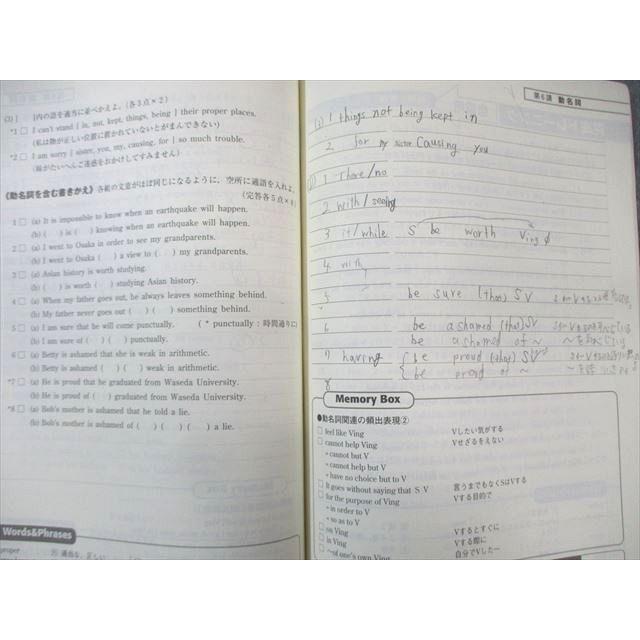 (3) [ ]内の語を適当に並べかえよ。(各3点×2)
*1 □ I can't stand [ is, not, kept, things, being ] their proper places.
(私は物が正しい位置に置かれていないとがまんできない)
*2 □ I am sorry [ sister, you, my, causing, for ] so much trouble.
(妹がたいへんご迷惑をおかけしてすみません)
《動名詞を含む書きかえ》各組の文意がほぼ同じになるように，空所に適語を入れよ。
(完答各5点×8)
1 □ (a) It is impossible to know when an earthquake will happen.
(b) ( ) is ( ) knowing when an earthquake will happen.
2 □ (a) I went to Osaka in order to see my grandparents.
(b) I went to Osaka ( ) a view to ( ) my grandparents.
3 □ (a) Asian history is worth studying.
(b) ( ) is worth ( ) studying Asian history.
4 □ (a) When my father goes out, he always leaves something behind.
(b) My father never goes out ( ) ( ) something behind.
5 □ (a) I am sure that he will come punctually. (* punctually : 時間通りに)
(b) I am sure of ( ) ( ) punctually.
6 □ (a) Betty is ashamed that she is weak in arithmetic.
(b) Betty is ashamed ( ) ( ) weak in arithmetic.
*7 □ (a) He is proud that he graduated from Waseda University.
(b) He is proud of ( ) ( ) graduated from Waseda University.
*8 □ (a) Bob's mother is ashamed that he told a lie.
(b) Bob's mother is ashamed of ( ) ( ) ( ) a lie.
Words&Phrases
第6講 動名詞
(3) 1 things not being kept in
2 for my sister causing you
1 There/no
2 with/seeing
3 it/while S be worth Ving φ
4 with
5 be sure (that) S V
6 be ashamed (that) S V
be ashamed of ~
7 having be proud (that) S V
be proud of ~
8
Memory Box
●動名詞関連の頻出表現②
□ feel like Ving Vしたい気がする
□ cannot help Ving Vせざるをえない
= cannot but V
= cannot help but V
= have no choice but to V
□ It goes without saying that S V 言うまでもなくSはVする
□ for the purpose of Ving Vする目的で
= in order to V
= so as to V
□ on Ving Vするとすぐに
□ in Ving Vする際に
□ ~of one's own Ving 自分でVした~